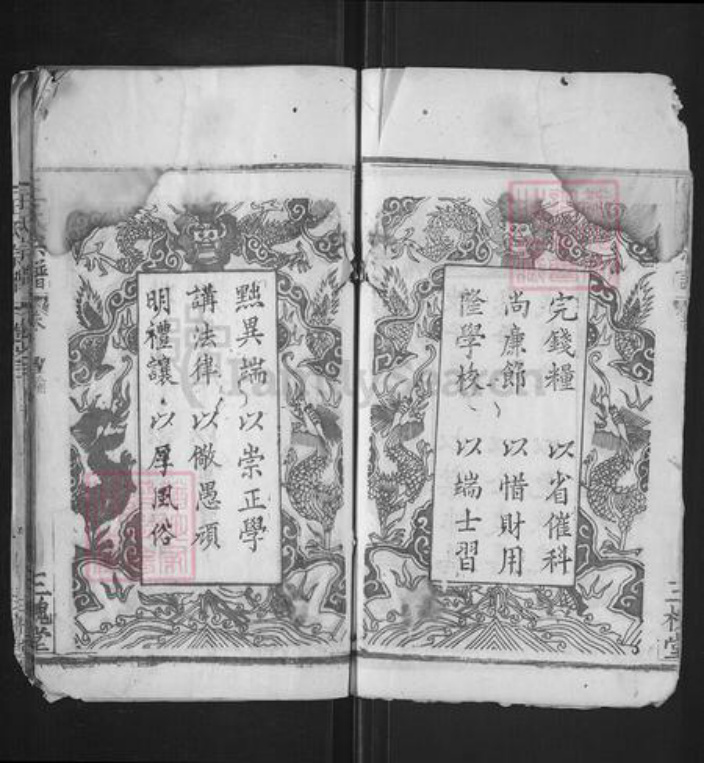 完錢糧 以省催科
尚廉節 以惜財用
隆學校 以端士習
黜異端 以崇正學
講法律 以儆愚頑
明禮讓 以厚風俗
三槐堂
三槐堂
FamilySearch